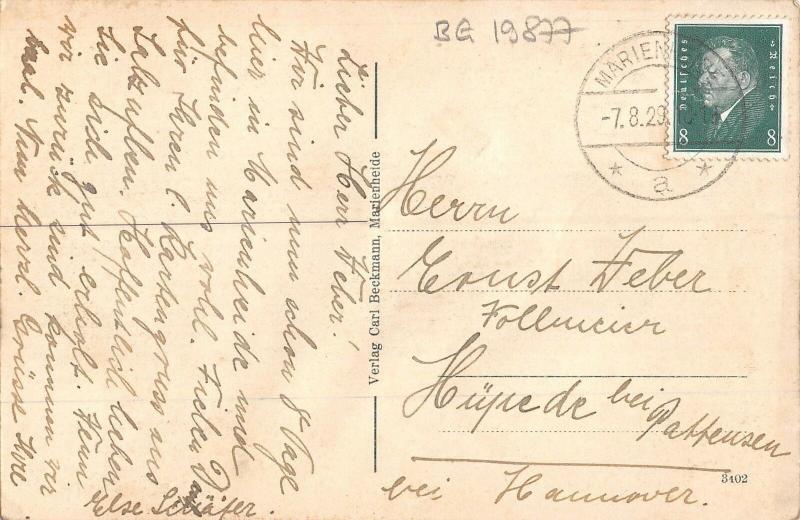 BE 19877
MARIEN
-7.8.29.
* a *
Deutsches Reich
8 8
Lieber Herr Weber!
Wir sind nun schon 8 Tage
hier in Marienheide und
befinden uns wohl. Vielen
für Ihren l. Kartengruss aus
Salzuflen. Hoffentlich haben
Sie sich gut erholt. Wenn
wir zurück sind kommen wir
mal. Nun herzl. Grüsse Ihre
Else Schäfer.
Verlag Carl Beckmann, Marienheide
Herrn
Ernst Weber
Hüpede bei
Pattensen
bei Hannover.
3402